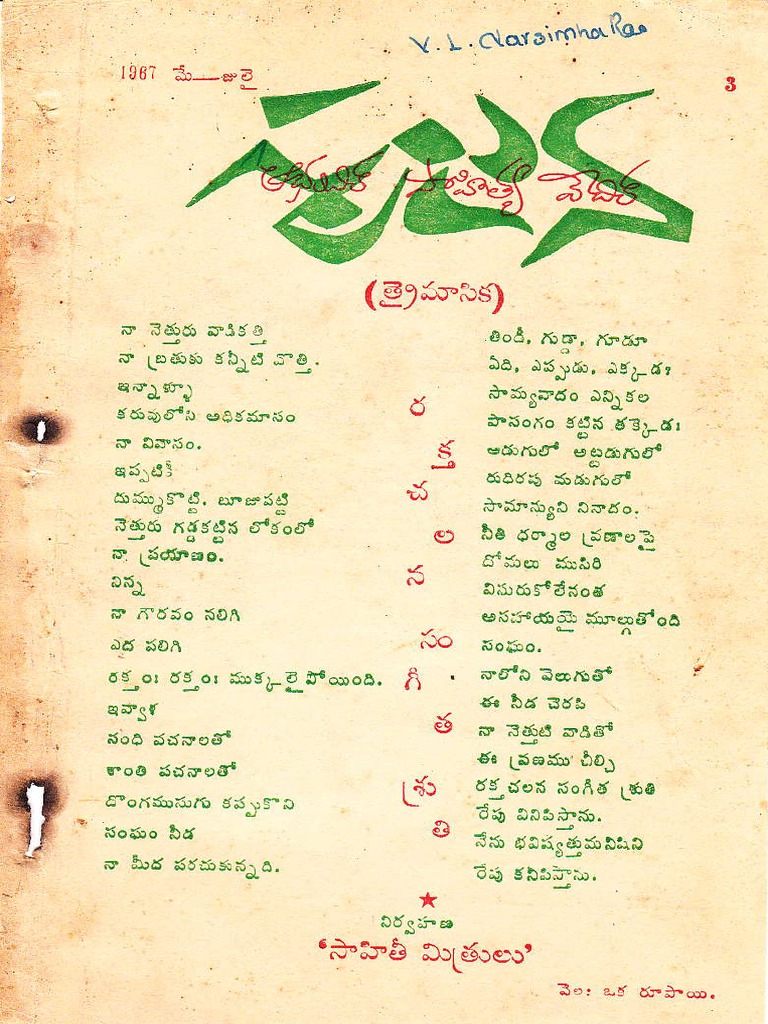 V. L. Narsimha Rao
1967 మే—జులై
3
సృజన
ఆధునిక సాహిత్య వేదిక
(త్రైమాసిక)
నా నెత్తురు వాడికత్తి
నా బ్రతుకు కన్నీటి వొత్తి.
ఇన్నాళ్ళూ
కరువులోసి అధికమాసం
నా వివాసం.
ఇప్పటికీ
దుమ్ముకొట్టి. బూజుపట్టి
నెత్తురు గడ్డకట్టిన లోకంలో
నా ప్రయాణం.
నిన్న
నా గౌరవం నలిగి
ఎద పలిగి
రక్తం: రక్తం: ముక్కలైపోయింది.
ఇవ్వాళ
సంధి వచనాలతో
శాంతి వచనాలతో
దొంగముసుగు కప్పుకొని
సంఘం నీడ
నా మీద పరచుకున్నది.
ర
క్త
చ
ల
న
సం
గీ
త
శ్రు
తి
తిండీ, గుడ్డా, గూడూ
ఏది, ఎప్పుడు, ఎక్కడ?
సామ్యవాదం ఎన్నికల
పాసంగం కట్టిన తక్కెడ:
అడుగులో అట్టడుగులో
రుధిరపు మడుగులో
సామాన్యుని నినాదం.
నీతి ధర్మాల వ్రణాలపై
దోమలు ముసిరి
విసురుకోలేనంత
అసహాయయై మూల్గుతోంది
సంఘం.
నాలోని వెలుగుతో
ఈ నీడ చెరపి
నా నెత్తుటి వాడితో
ఈ వ్రణము చీల్చి
రక్తచలన సంగీత శ్రుతి
రేపు వినిపిస్తాను.
నేను భవిష్యత్తుమనిషిని
రేపు కనిపిస్తాను.
నిర్వహణ
‘సాహితీ మిత్రులు’
వెల: ఒక రూపాయి.